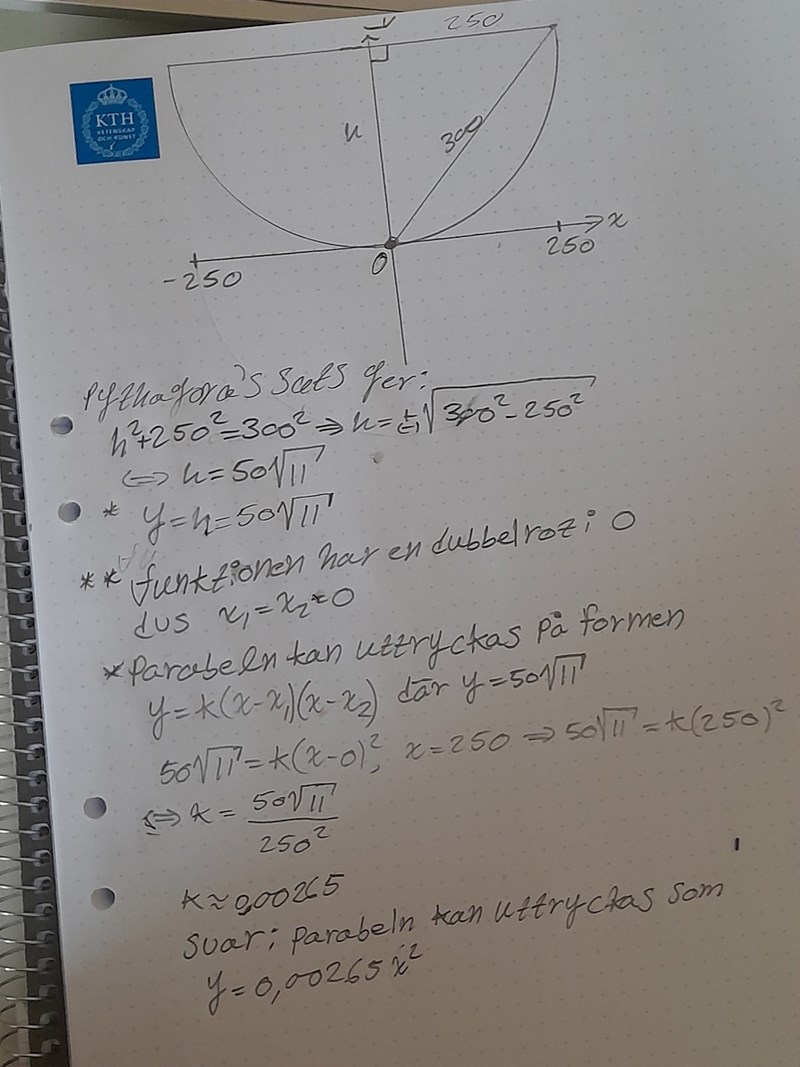 y
250
KTH
VETENSKAP
OCH KONST
h
300
x
-250
0
250
Pythagora's sats ger:
h²+250²=300² ⇒ h=±√300²-250²
⇔ h=50√11
* y=h=50√11
** funktionen har en dubbelrot i 0
dvs x₁=x₂=0
*Parabeln kan uttryckas på formen
y=k(x-x₁)(x-x₂) där y=50√11
50√11=k(x-0)², x=250 ⇒ 50√11=k(250)²
⇔ k=50√11/250²
k≈0,00265
svar: parabeln kan uttryckas som
y=0,00265x²